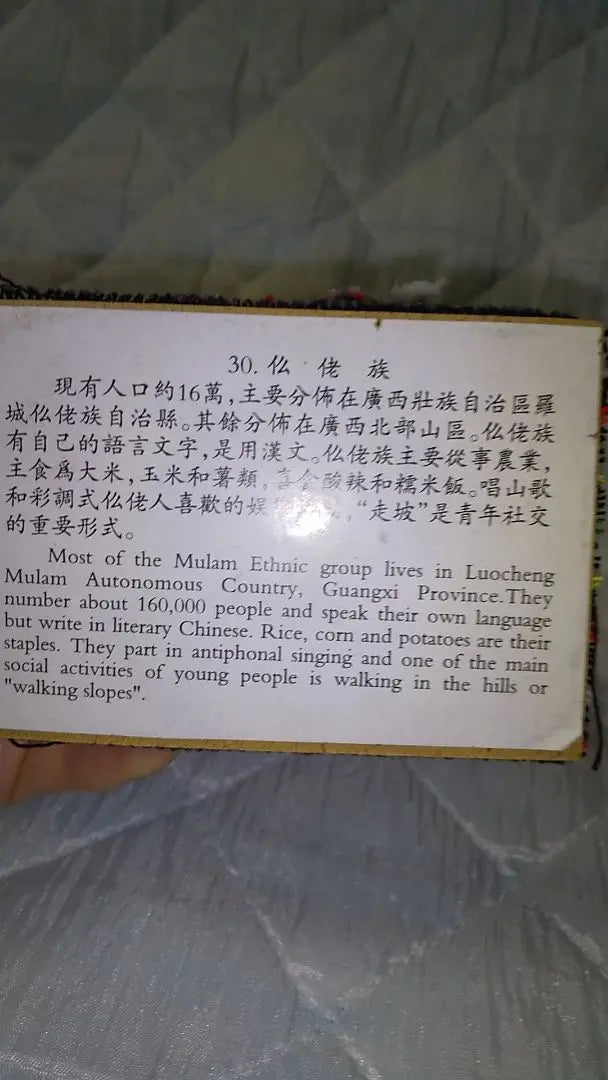 30. 仫 佬 族
現有人口約16萬,主要分佈在廣西壯族自治區羅
城仫佬族自治縣。其餘分佈在廣西北部山區。仫佬族
有自己的語言文字,是用漢文。仫佬族主要從事農業,
主食爲大米,玉米和薯類,喜食酸辣和糯米飯。唱山歌
和彩調式仫佬人喜歡的娱 “走坡”是青年社交
的重要形式。
Most of the Mulam Ethnic group lives in Luocheng
Mulam Autonomous Country, Guangxi Province.They
number about 160,000 people and speak their own language
but write in literary Chinese. Rice, corn and potatoes are their
staples. They part in antiphonal singing and one of the main
social activities of young people is walking in the hills or
"walking slopes".